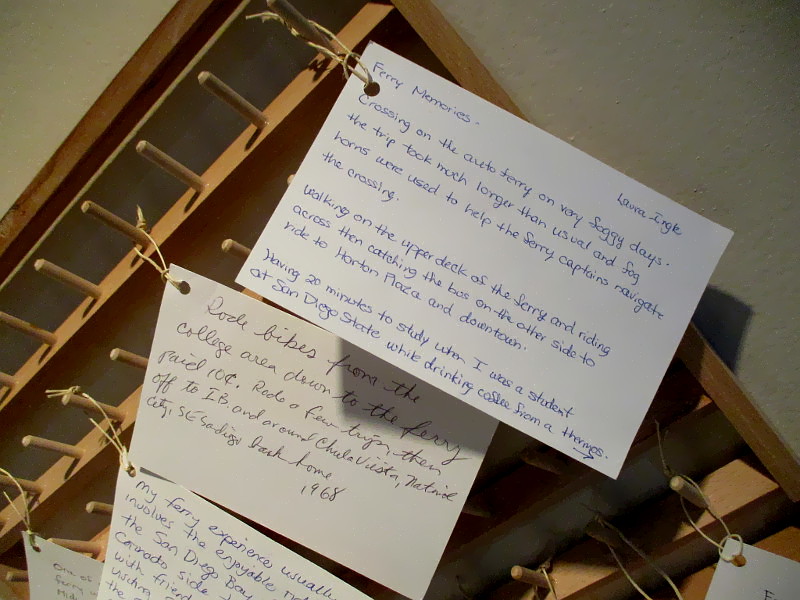 Ferry Memories.
Laura Ingle
Crossing on the auto ferry on very foggy days.
the trip took much longer than usual and fog
horns were used to help the ferry captains navigate
the crossing.
Walking on the upper deck of the ferry and riding
across then catching the bus on the other side to
ride to Horton Plaza and downtown.
Having 20 minutes to study when I was a student
at San Diego State while drinking coffee from a thermos.
Rode bikes from the
college area down to the ferry
paid 10¢. Rode a few trips then
off to I.B. and around Chula Vista, National
City, SE San Diego back home
1968
My ferry experience usually
involves the enjoyable
the San Diego Bay
Coronado side
with friends
the
One of
ferry